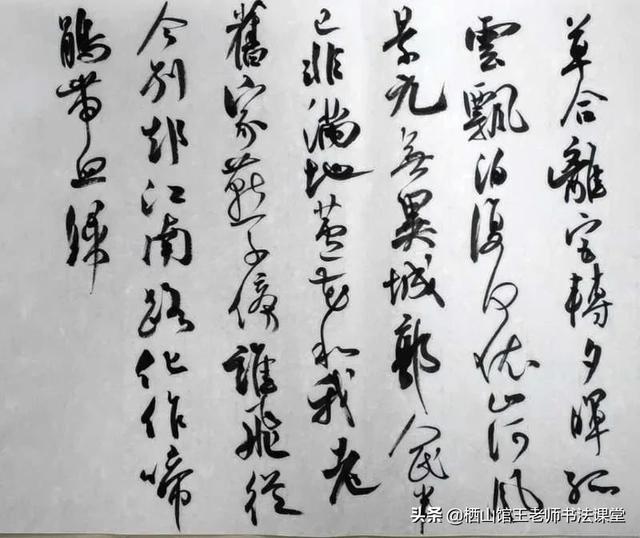 草合離宮轉夕暉孤
雲飄泊復何依山河風
景元無異城郭人民半
已非滿地蘆花和我老
舊家燕子傍誰飛從
今別卻江南路化作啼
鵑帶血歸
头条 @栖山馆王老师书法课堂